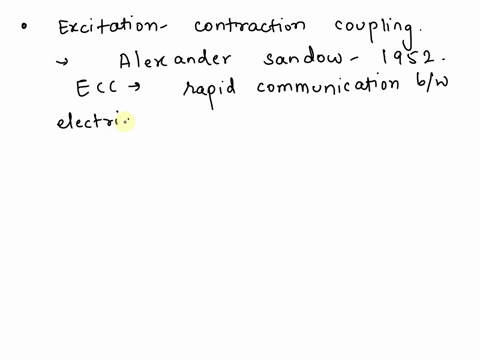 • Excitation- contraction coupling.
→ Alexander sandow- 1952.
ECC → rapid communication b/w
electri